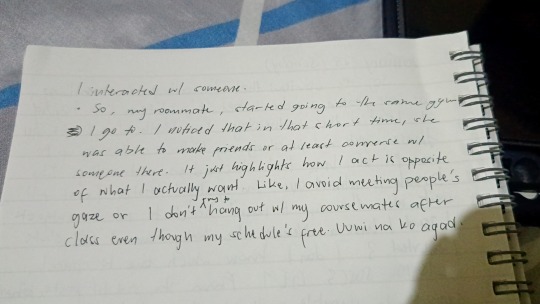 I interacted w/ someone.
• So, my roommate, started going to the same gym
I go to. I noticed that in that short time, she
was able to make friends or at least converse w/
someone there. It just highlights how I act is opposite
of what I actually want. Like, I avoid meeting people's
gaze or I don't hang out w/ my coursemates after
class even though my schedule's free. Uuwi na ko agad.